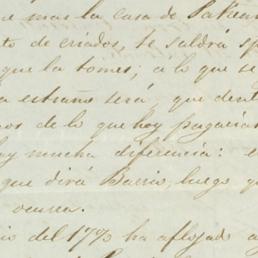 que mas la casa de
to de criados, te saldrá
que la tomes; á lo que se
a estraño será, que dent
os de lo que hoy pagarian
y mucha diferencia: e
que dirá Barrio, luego q
ocurra.
io del 17 % ha aflojado a